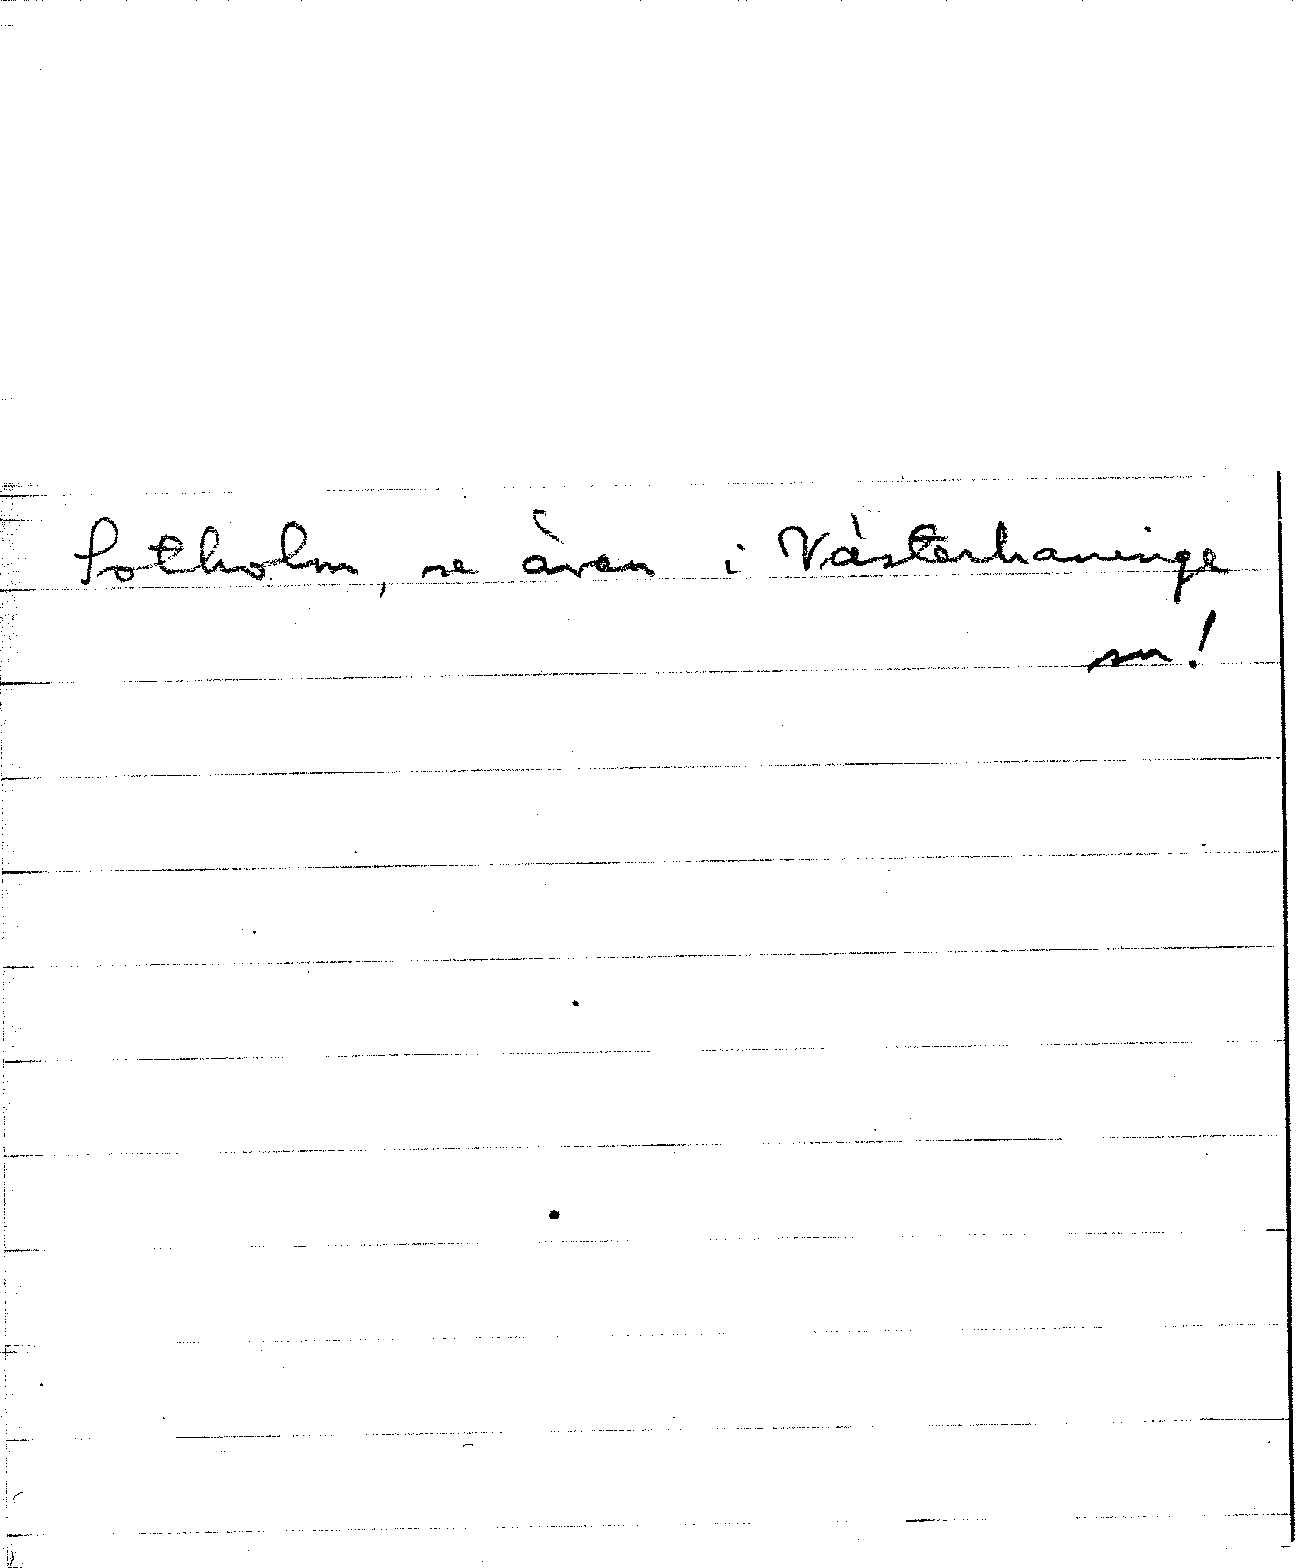 Sotholm, se även i Västerhaninge
sn!